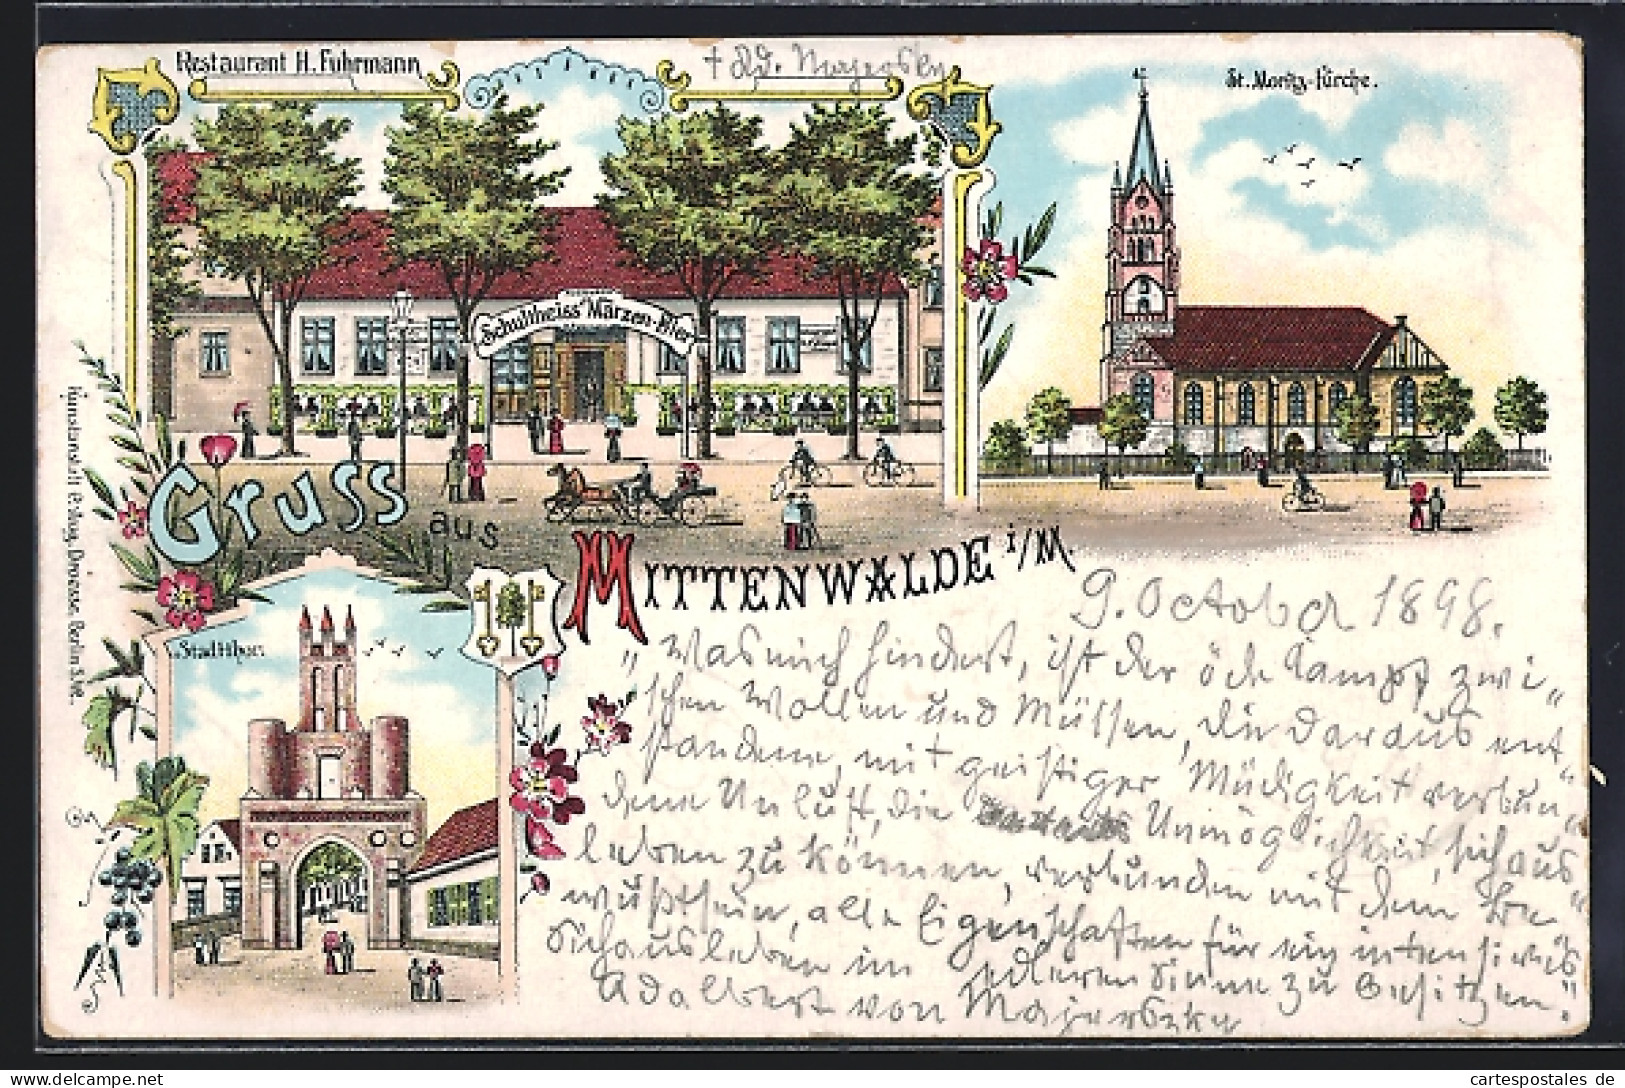 Restaurant H. Fuhrmann
† Ad. Majersky
St. Moritz-Kirche.
Schultheiss' Märzen-Bier
Gruss
aus
MITTENWALDE i/M.
Stadtthor.
Kunstanstalt
Drösse, Berlin S.W.
9. October 1898.
"Was mich hindert, ist der öde Kampf zwi"
"schen Wollen und Müssen, die daraus ent"
standene, mit geistiger Müdigkeit verbun"
dene Unlust, die Unmöglichkeit, sich aus"
leben zu können, verbunden mit dem Be"
wußtsein, alle Eigenschaften für ein intensives
Sichausleben im edleren Sinne zu besitzen."
Adalbert von Majerszky
cartespostales de